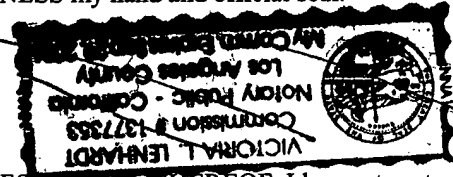 NESS my hand and official seal.
VICTORIA L. LENHARDT
Commission # 1377353
Notary Public - California
Los Angeles County
My Comm. Expires